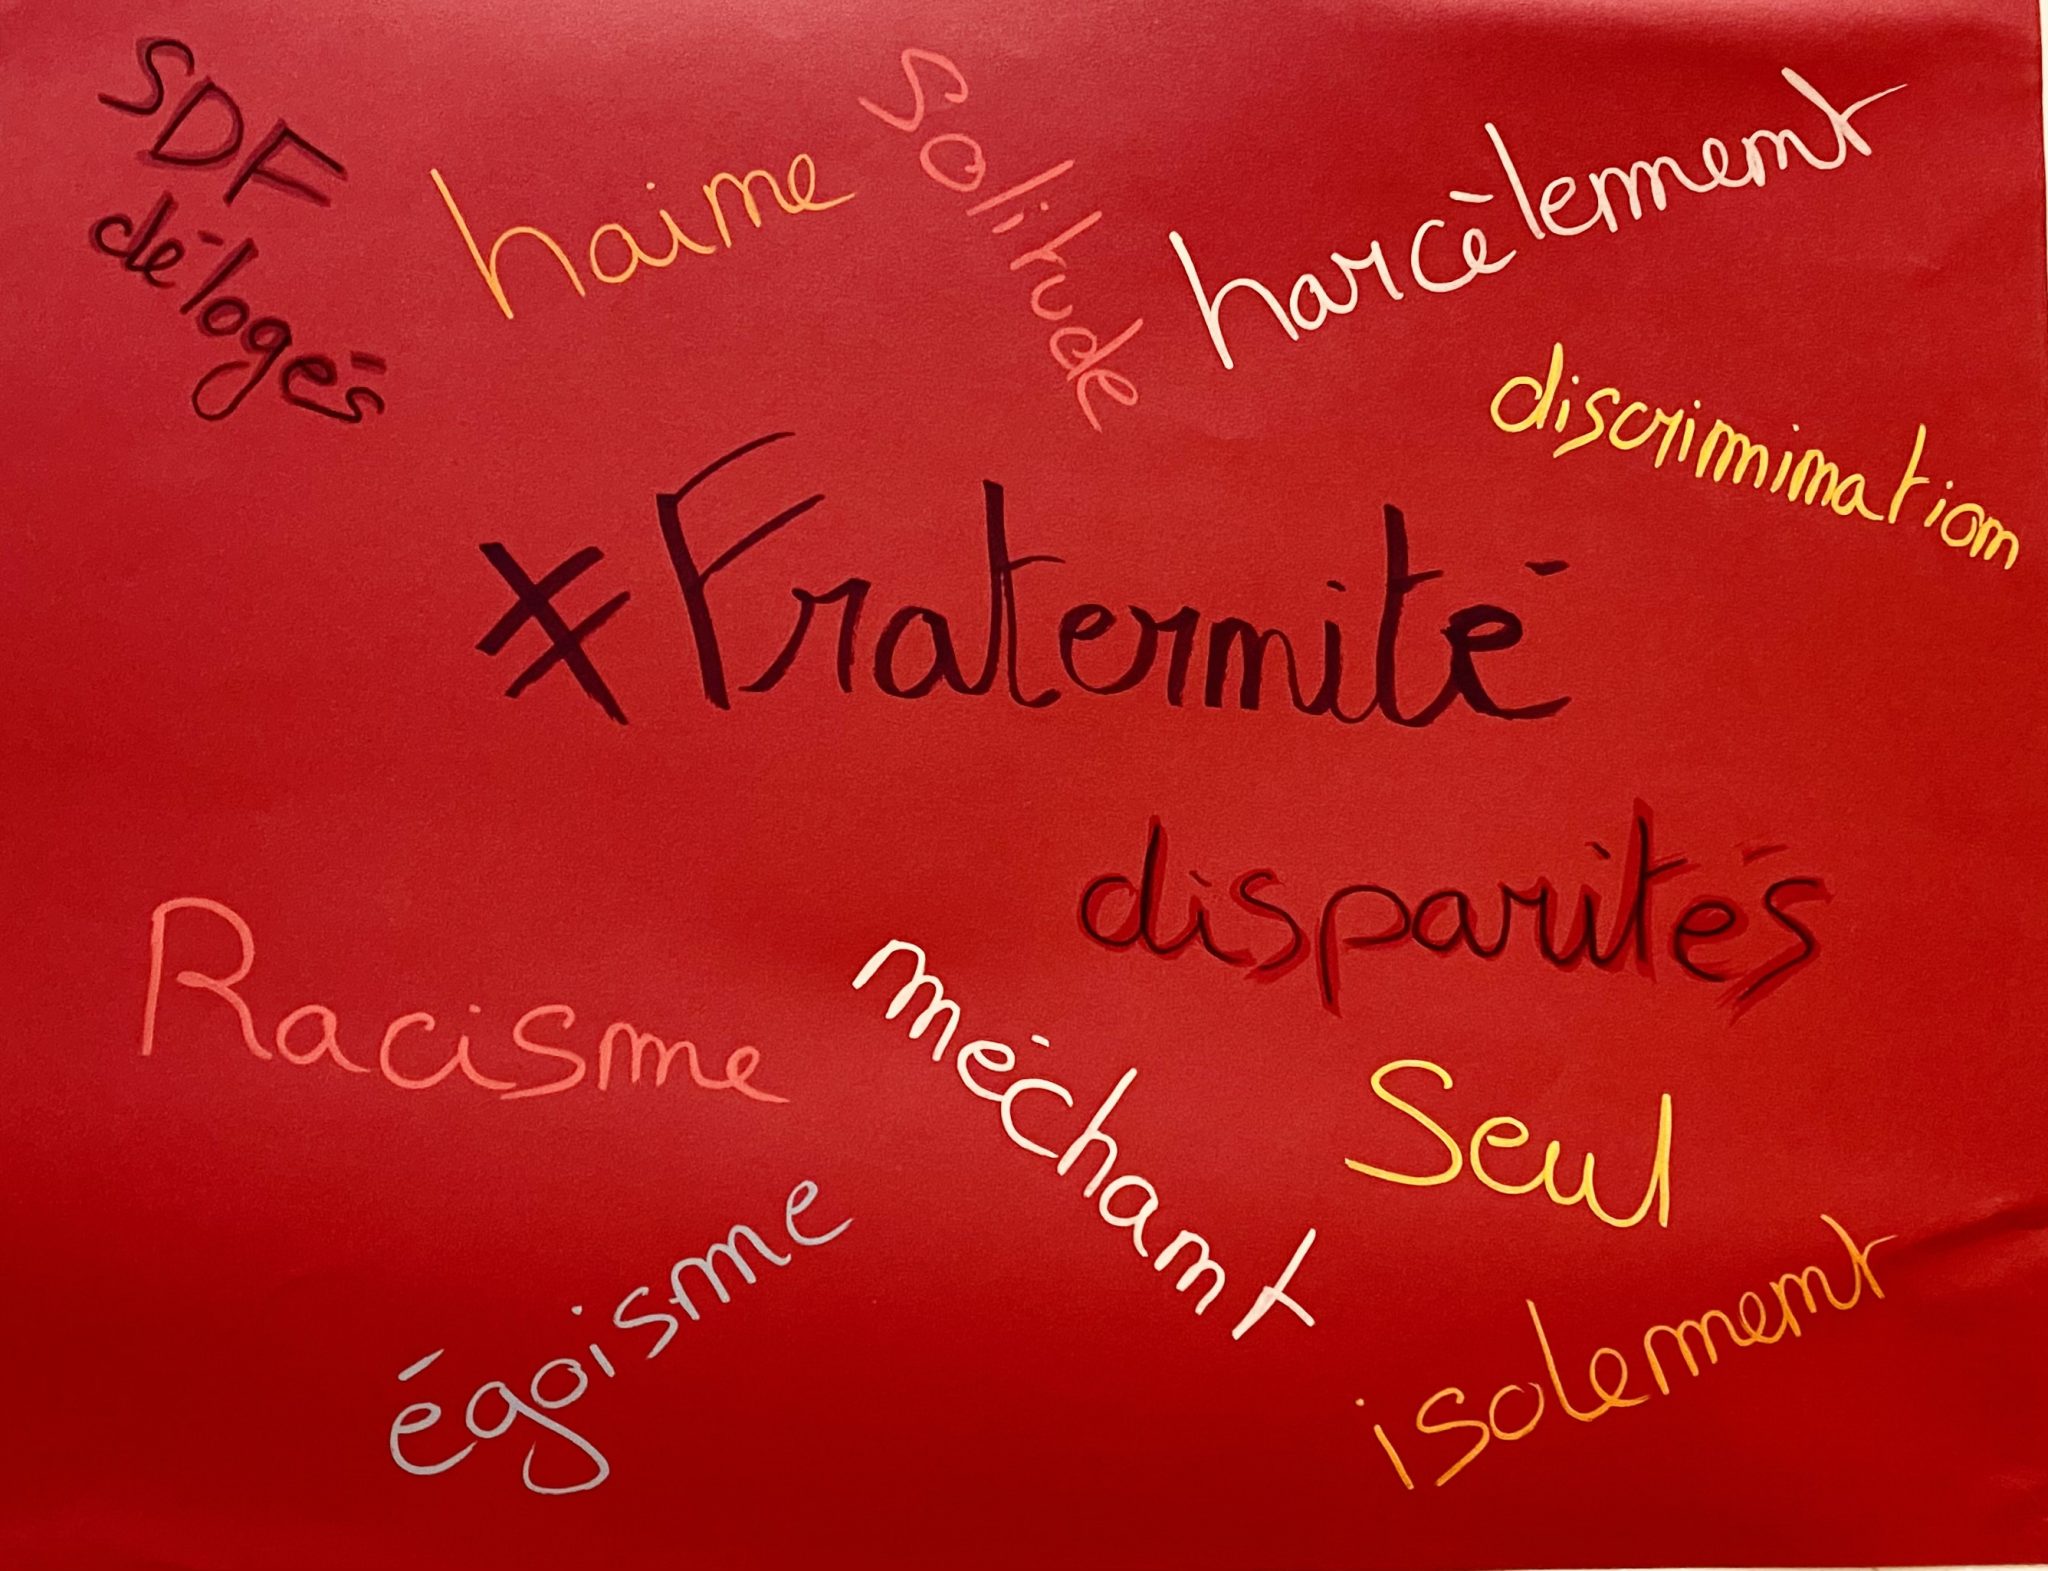 SDF
délogés
haine
solitude
harcèlement
discrimination
≠ Fraternité
disparités
Racisme
méchant
Seul
égoisme
isolement